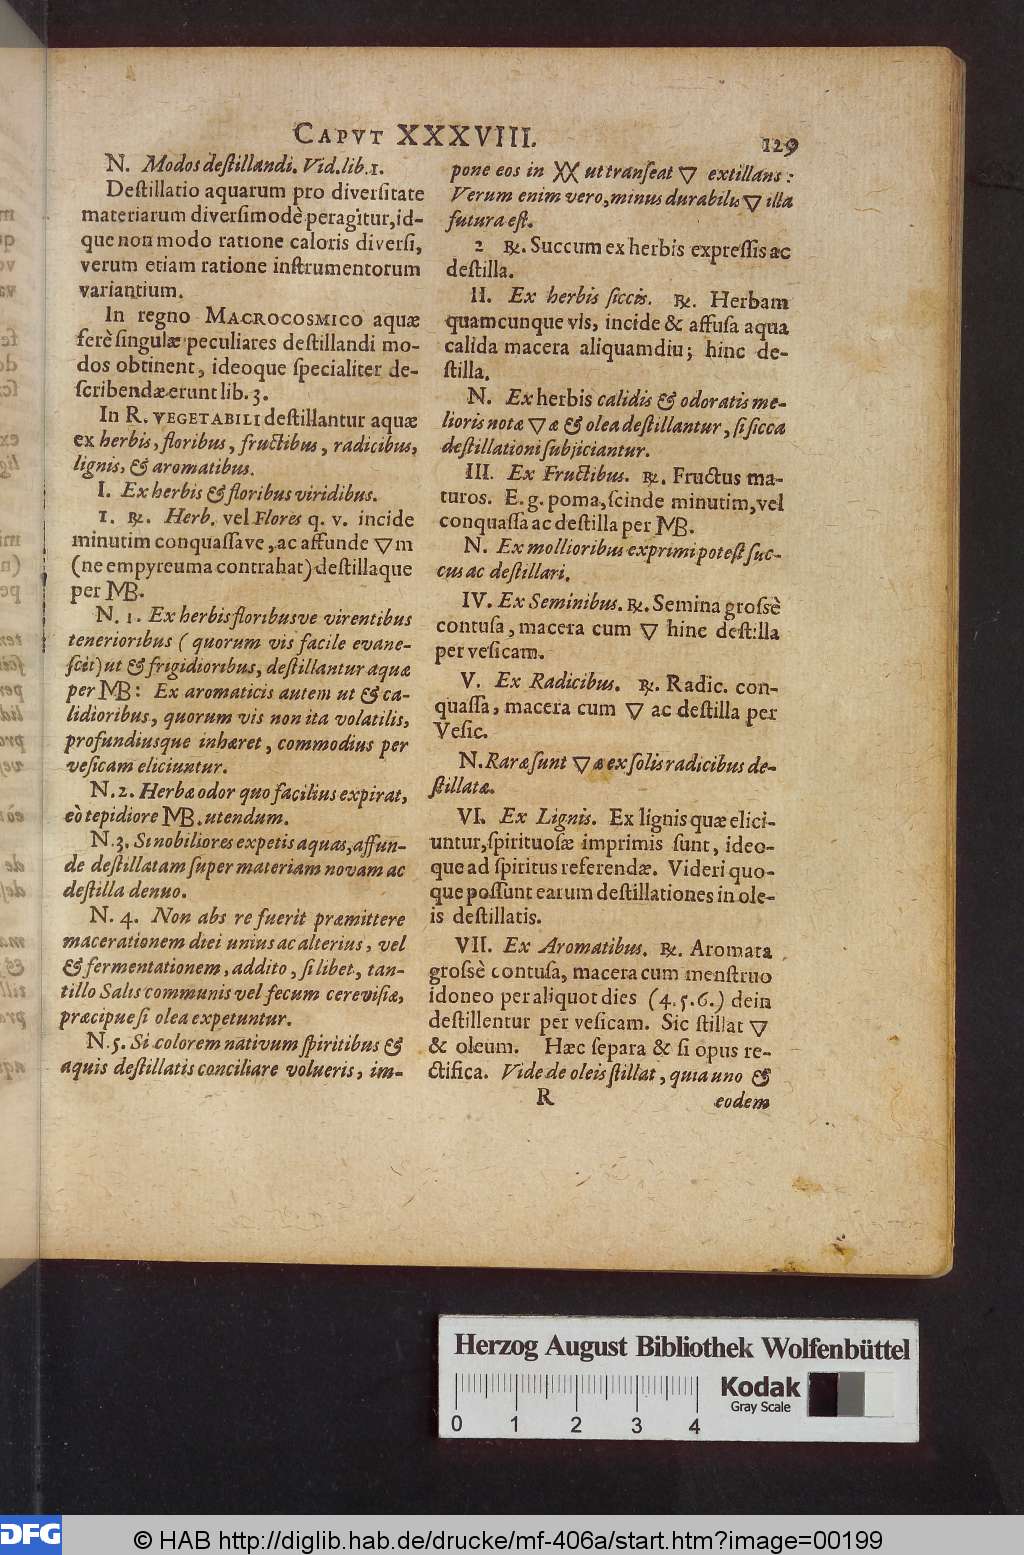 CAPVT XXXVIII. 129
N. Modos destillandi. Vid. lib. 1.
Destillatio aquarum pro diversitate
materiarum diversimodè peragitur, id-
que non modo ratione caloris diversi,
verum etiam ratione instrumentorum
variantium.
In regno MACROCOSMICO aquæ
ferè singulæ peculiares destillandi mo-
dos obtinent, ideoque specialiter de-
scribendæ erunt lib. 3.
In R. VEGETABILI destillantur aquæ
ex herbis, floribus, fructibus, radicibus,
lignis, & aromatibus.
I. Ex herbis & floribus viridibus.
1. ℞. Herb. vel Flores q. v. incide
minutim conquassave, ac affunde ▽m
(ne empyreuma contrahat) destillaque
per MB.
N. 1. Ex herbis floribusve virentibus
tenerioribus ( quorum vis facile evane-
scit) ut & frigidioribus, destillantur aquæ
per MB: Ex aromaticis autem ut & ca-
lidioribus, quorum vis non ita volatilis,
profundiusque inhæret, commodius per
vesicam eliciuntur.
N. 2. Herbæ odor quo facilius expirat,
eò tepidiore MB. utendum.
N. 3. Si nobiliores expetis aquas, affun-
de destillatam super materiam novam ac
destilla denuo.
N. 4. Non abs re fuerit præmittere
macerationem diei unius ac alterius, vel
& fermentationem, addito, si libet, tan-
tillo Salis communis vel fecum cerevisiæ,
præcipue si olea expetuntur.
N. 5. Si colorem nativum spiritibus &
aquis destillatis conciliare volueris, im-
pone eos in XX ut transeat ▽ extillans:
Verum enim vero, minus durabilis ▽ illa
futura est.
2 ℞. Succum ex herbis expressis ac
destilla.
II. Ex herbis siccis. ℞. Herbam
quamcunque vis, incide & affusa aqua
calida macera aliquamdiu; hinc de-
stilla.
N. Ex herbis calidis & odoratis me-
lioris notæ ▽æ & olea destillantur, si sicca
destillationi subjiciantur.
III. Ex Fructibus. ℞. Fructus ma-
turos. E. g. poma, scinde minutim, vel
conquassa ac destilla per MB.
N. Ex mollioribus exprimi potest suc-
cus ac destillari.
IV. Ex Seminibus. ℞. Semina grossè
contusa, macera cum ▽ hinc destilla
per vesicam.
V. Ex Radicibus. ℞. Radic. con-
quassa, macera cum ▽ ac destilla per
Vesic.
N. Raræ sunt ▽æ ex solis radicibus de-
stillatæ.
VI. Ex Lignis. Ex lignis quæ elici-
untur, spirituosæ imprimis sunt, ideo-
que ad spiritus referendæ. Videri quo-
que possunt earum destillationes in ole-
is destillatis.
VII. Ex Aromatibus. ℞. Aromata
grossè contusa, macera cum menstruo
idoneo per aliquot dies (4. 5. 6.) dein
destillentur per vesicam. Sic stillat ▽
& oleum. Hæc separa & si opus re-
ctifica. Vide de oleis stillat, quia uno &
R eodem
Herzog August Bibliothek Wolfenbüttel
0 1 2 3 4
Kodak
Gray Scale
DFG
© HAB http://diglib.hab.de/drucke/mf-406a/start.htm?image=00199